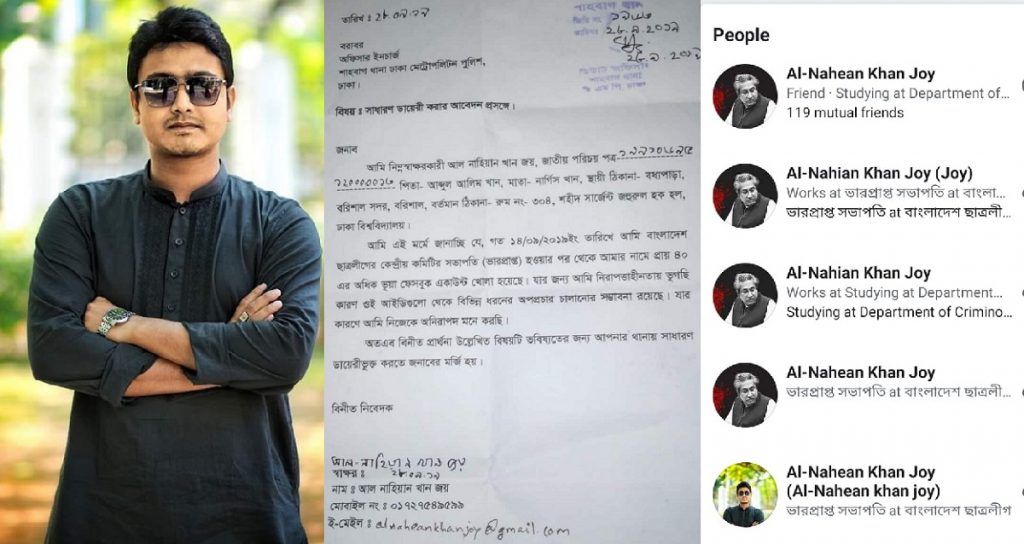 তারিখ ঃ ২৮.০৯.১৯
শাহবাগ থানা
২৮.৯.২০১৯
২৮.৯.২০১৯
বরাবর
অফিসার ইনচার্জ
শাহবাগ থানা ঢাকা মেট্রোপলিটন পুলিশ,
ঢাকা।
বিষয় ঃ সাধারণ ডায়েরী করার আবেদন প্রসঙ্গে।
জনাব
আমি নিম্নস্বাক্ষরকারী আল নাহিয়ান খান জয়, জাতীয় পরিচয় পত্র
পিতা- আব্দুল আলিম খান, মাতা- নার্গিস খান, স্থায়ী ঠিকানা-
বরিশাল সদর, বরিশাল, বর্তমান ঠিকানা- রুম নং- ৩০৪, শহীদ সার্জেন্ট জহুরুল হক হল,
ঢাকা বিশ্ববিদ্যালয়।
আমি এই মর্মে জানাচ্ছি যে, গত ১৪/০৯/২০১৯ইং তারিখে আমি বাংলাদেশ
ছাত্রলীগের কেন্দ্রীয় কমিটির সভাপতি (ভারপ্রাপ্ত) হওয়ার পর থেকে আমার নামে প্রায় ৪০
এর অধিক ভূয়া ফেসবুক একাউন্ট খোলা হয়েছে। যার জন্য আমি নিরাপত্তাহীনতায় ভুগছি
কারণ ওই আইডিগুলো থেকে বিভিন্ন ধরনের অপপ্রচার চালানোর সম্ভাবনা রয়েছে। যার
কারণে আমি নিজেকে অনিরাপদ মনে করছি।
অতএব বিনীত প্রার্থনা উল্লেখিত বিষয়টি ভবিষ্যতের জন্য আপনার থানায় সাধারণ
ডায়েরীভুক্ত করতে জনাবের মর্জি হয়।
বিনীত নিবেদক
আল-নাহিয়ান খান জয়
স্বাক্ষর ঃ ২৮.০৯.১৯
নাম ঃ আল নাহিয়ান খান জয়
মোবাইল নং ঃ ০১৭২৭৫৪৯৫৯৯
ই-মেইল ঃ alnaheankhanjoy@gmail.com
People
Al-Nahean Khan Joy
Friend · Studying at Department of...
119 mutual friends
Al-Nahian Khan Joy (Joy)
Works at ভারপ্রাপ্ত সভাপতি at বাংলা...
ভারপ্রাপ্ত সভাপতি at বাংলাদেশ ছাত্রলী...
Al-Nahian Khan Joy
Works at Studying at Department...
Studying at Department of Crimino...
Al-Nahean Khan Joy
ভারপ্রাপ্ত সভাপতি at বাংলাদেশ ছাত্রলী...
Al-Nahean Khan Joy
(Al-Nahean khan joy)
ভারপ্রাপ্ত সভাপতি at বাংলাদেশ ছাত্রলীগ